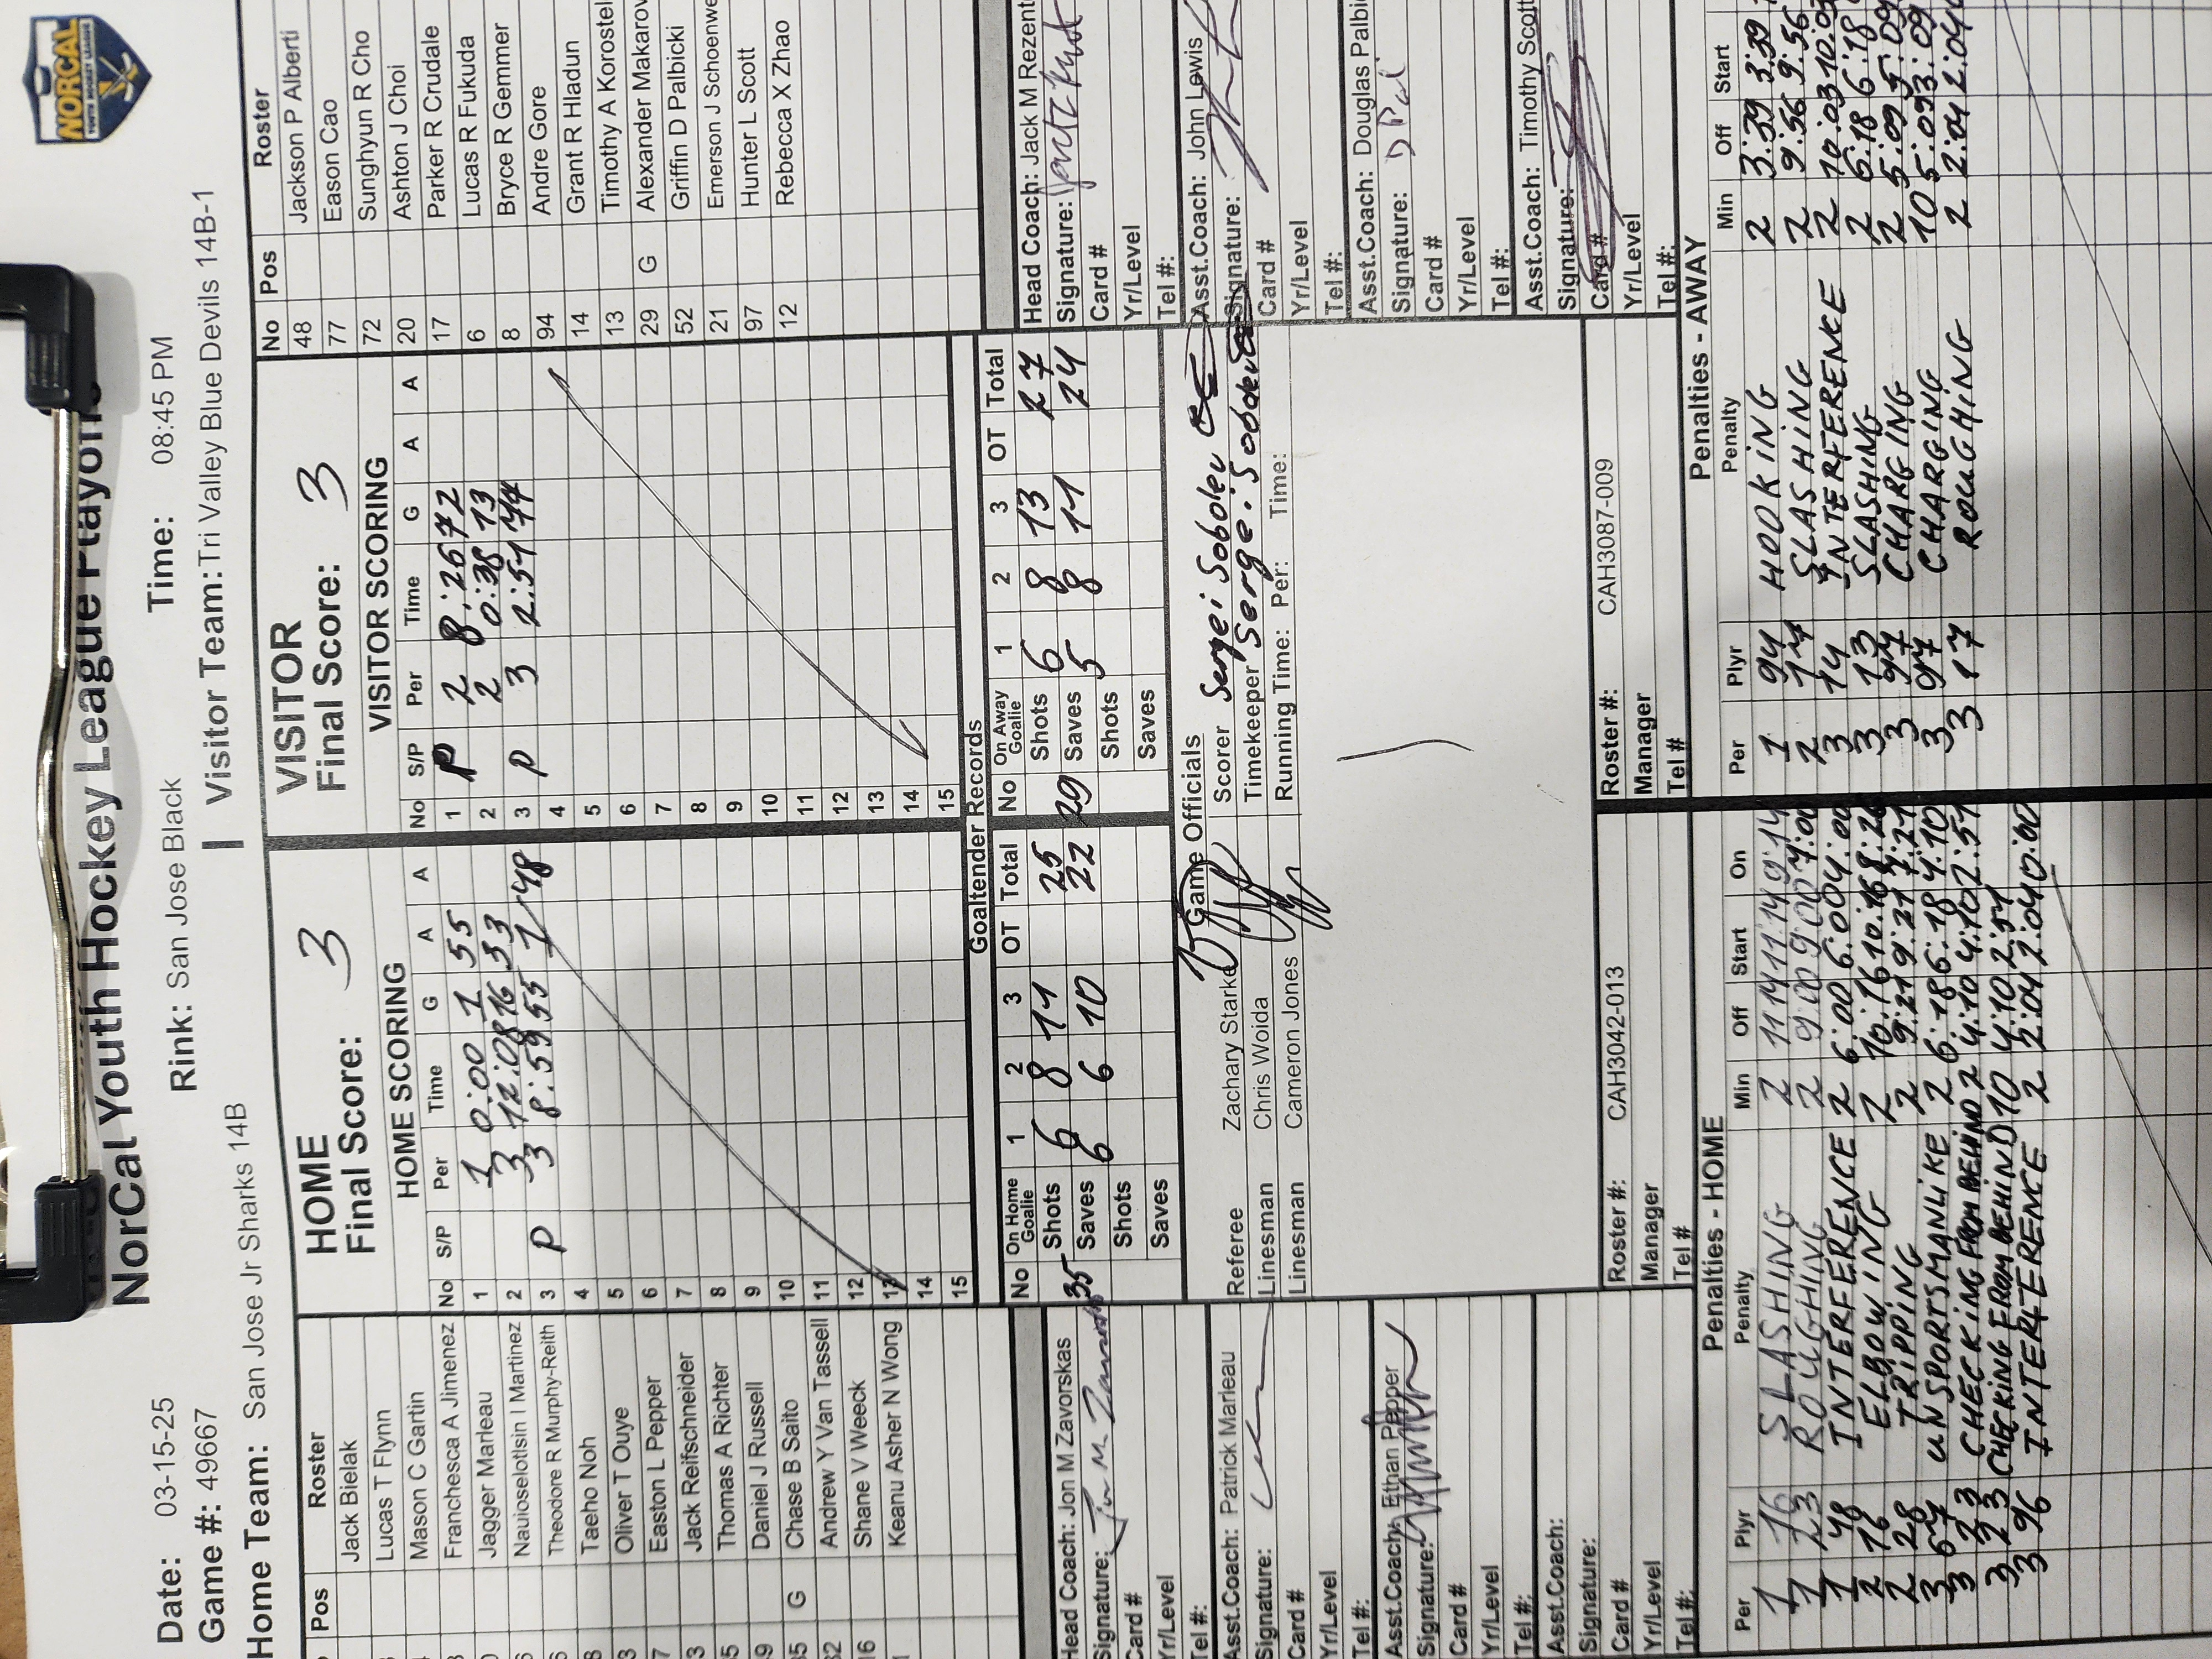 NORCAL
YOUTH HOCKEY LEAGUE
NorCal Youth Hockey League Playoffs
Date: 03-15-25
Rink: San Jose Black
Time: 08:45 PM
Game #: 49667
Home Team: San Jose Jr Sharks 14B
Visitor Team: Tri Valley Blue Devils 14B-1
Pos Roster
Jack Bielak
Lucas T Flynn
Mason C Gartin
Franchesca A Jimenez
Jagger Marleau
Nauioselotlsin I Martinez
Theodore R Murphy-Reith
Taeho Noh
Oliver T Ouye
Easton L Pepper
Jack Reifschneider
Thomas A Richter
Daniel J Russell
G Chase B Saito
Andrew Y Van Tassell
Shane V Weeck
Keanu Asher N Wong
HOME
Final Score: 3
HOME SCORING
No S/P Per Time G A A
1 1 0:00 1 55
2 3 12:08 16 33
3 P 3 8:59 55 1 48
4
5
6
7
8
9
10
11
12
13
14
15
VISITOR
Final Score: 3
VISITOR SCORING
No S/P Per Time G A A
1 P 2 8:26 72
2 2 0:38 13
3 P 3 2:51 14
4
5
6
7
8
9
10
11
12
13
14
15
No Pos Roster
48 Jackson P Alberti
77 Eason Cao
72 Sunghyun R Cho
20 Ashton J Choi
17 Parker R Crudale
6 Lucas R Fukuda
8 Bryce R Gemmer
94 Andre Gore
14 Grant R Hladun
13 Timothy A Korostel
29 G Alexander Makarov
52 Griffin D Palbicki
21 Emerson J Schoenwe
97 Hunter L Scott
12 Rebecca X Zhao
Goaltender Records
No On Home Goalie 1 2 3 OT Total
35 Shots 6 8 11 25
Saves 6 6 10 22
Shots
Saves
No On Away Goalie 1 2 3 OT Total
29 Shots 6 8 13 27
Saves 5 8 11 24
Shots
Saves
Head Coach: Jon M Zavorskas
Signature:
Card #
Yr/Level
Tel #:
Asst.Coach: Patrick Marleau
Signature:
Card #
Yr/Level
Tel #:
Asst.Coach: Ethan Pepper
Signature:
Card #
Yr/Level
Tel #:
Asst.Coach:
Signature:
Card #
Yr/Level
Tel #:
Game Officials
Referee Zachary Starke
Linesman Chris Woida
Linesman Cameron Jones
Scorer Sergei Sobolev
Timekeeper Serge.
Running Time: Per: Time:
Head Coach: Jack M Rezent
Signature:
Card #
Yr/Level
Tel #:
Asst.Coach: John Lewis
Signature:
Card #
Yr/Level
Tel #:
Asst.Coach: Douglas Palbi
Signature:
Card #
Yr/Level
Tel #:
Asst.Coach: Timothy Scott
Signature:
Card #
Yr/Level
Tel #:
Roster #: CAH3042-013
Manager
Tel #
Roster #: CAH3087-009
Manager
Tel #
Penalties - HOME
Per Plyr Penalty Min Off Start On
1 16 SLASHING 2 11:14 11:14 9:14
1 23 ROUGHING 2 9:00 9:00 7:00
1 48 INTERFERENCE 2 6:00 6:00 4:00
2 16 ELBOWING 2 10:16 10:16 8:26
2 28 TRIPPING 2 9:21 9:21 7:21
3 67 UNSPORTSMANLIKE 2 6:18 6:18 4:10
3 23 CHECKING FROM BEHIND 2 4:10 4:10 2:51
3 23 CHECKING FROM BEHIND 10 4:10 2:51
3 96 INTERFERENCE 2 2:04 2:04 0:00
Penalties - AWAY
Per Plyr Penalty Min Off Start
1 94 HOOKING 2 3:39 3:39
2 14 SLASHING 2 9:56 9:56
3 14 INTERFERENCE 2 10:03 10:03
3 13 SLASHING 2 6:18 6:18
3 97 CHARGING 2 5:09 5:09
3 97 CHARGING 10 5:09 3:09
3 17 ROUGHING 2 2:04 2:04